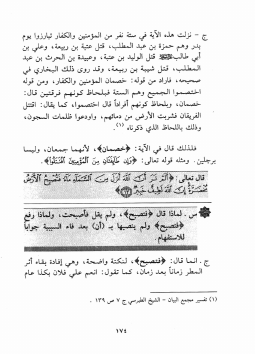 ج - نزلت هذه الآية في ستة نفر من المؤمنين والكفار تبارزوا يوم
بدر وهم حمزة بن عبد المطلب، قتل عتبة بن ربيعة، وعلي بن
أبي طالب قتل الوليد بن عتبة، وعبيدة بن الحرث بن عبد
المطلب، قتل شيبة بن ربيعة، وقد روى ذلك البخاري في
صحيحه، فاراد من قوله: خصمان المؤمنين والكفار، ومن قوله
اختصموا الجميع وهم الستة فبلحاظ كونهم فرقتين قال:
خصمان، وبلحاظ كونهم أفراداً قال اختصموا، كما يقال: اقتتل
الفريقان فشربت الأرض من دمائهم، واودعوا ظلمات السجون،
وذلك باللحاظ الذي ذكرناه (١).
فلذلك قال في الآية: ﴿خصمان﴾، لأنهما جمعان، وليسا
برجلين. ومثله قوله تعالى: ﴿وَإِن طَائِفَتَانِ مِنَ الْمُؤْمِنِينَ اقْتَتَلُوا﴾.
قال تعالى: ﴿أَلَمْ تَرَ أَنَّ اللَّهَ أَنزَلَ مِنَ السَّمَاءِ مَاءً فَتُصْبِحُ الْأَرْضُ
مُخْضَرَّةً إِنَّ اللَّهَ لَطِيفٌ خَبِيرٌ ٦٣﴾
س - لماذا قال ﴿فتصبح﴾، ولم يقل فأصبحت، ولماذا رفع
﴿فتصبح﴾ ولم ينصبها بـ (أن) بعد فاء السببية جواباً
للاستفهام.
ج - انما قال: ﴿فتصبح﴾، لنكتة واضحة، وهي إفادة بقاء أثر
المطر زماناً بعد زمان، كما تقول: انعم علي فلان بكذا عام
(١) تفسير مجمع البيان - الشيخ الطبرسي ج ٧ ص ١٣٩.
١٧٤